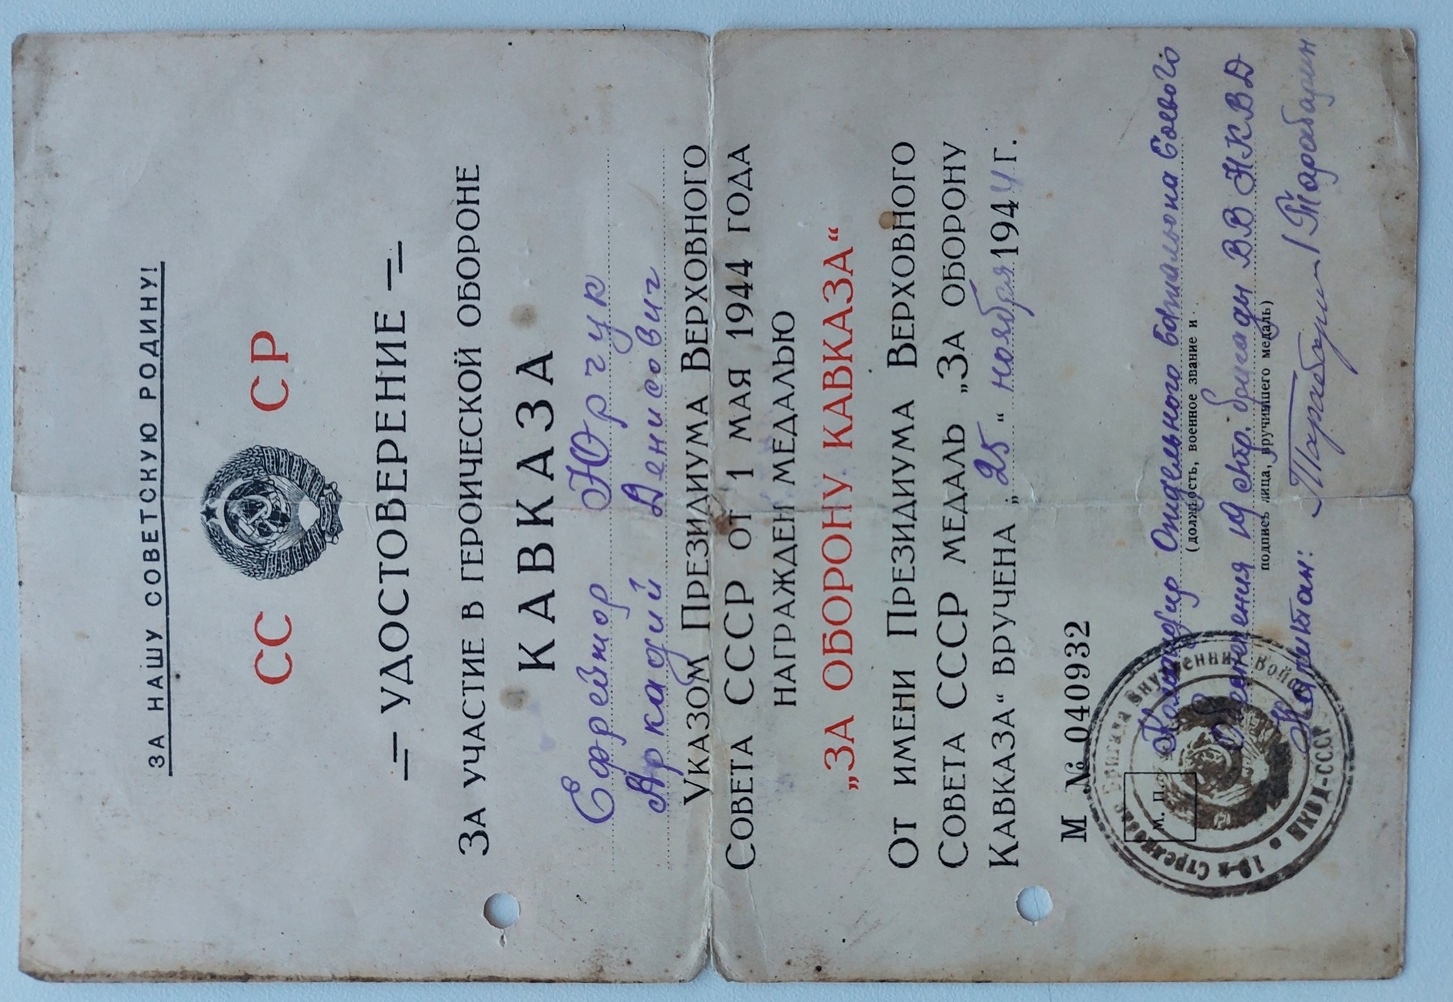 ЗА НАШУ СОВЕТСКУЮ РОДИНУ!
СС СР
УДОСТОВЕРЕНИЕ
ЗА УЧАСТИЕ В ГЕРОИЧЕСКОЙ ОБОРОНЕ
КАВКАЗА
Ефрейтор Юрчук
Аркадий Денисович
УКАЗОМ ПРЕЗИДИУМА ВЕРХОВНОГО
СОВЕТА СССР ОТ 1 МАЯ 1944 ГОДА
НАГРАЖДЕН МЕДАЛЬЮ
„ЗА ОБОРОНУ КАВКАЗА“
ОТ ИМЕНИ ПРЕЗИДИУМА ВЕРХОВНОГО
СОВЕТА СССР МЕДАЛЬ „ЗА ОБОРОНУ
КАВКАЗА“ ВРУЧЕНА „25“ ноября 1944 г.
М № 040932
Командир Отдельного батальона боевого
(должность, военное звание и
обеспечения 19 стр. бригады ВВ НКВД
подпись лица, вручившего медаль)
Капитан: /Тарабарин
М. П.
19-я Стрелковая Бригада Внутренних Войск НКВД-СССР